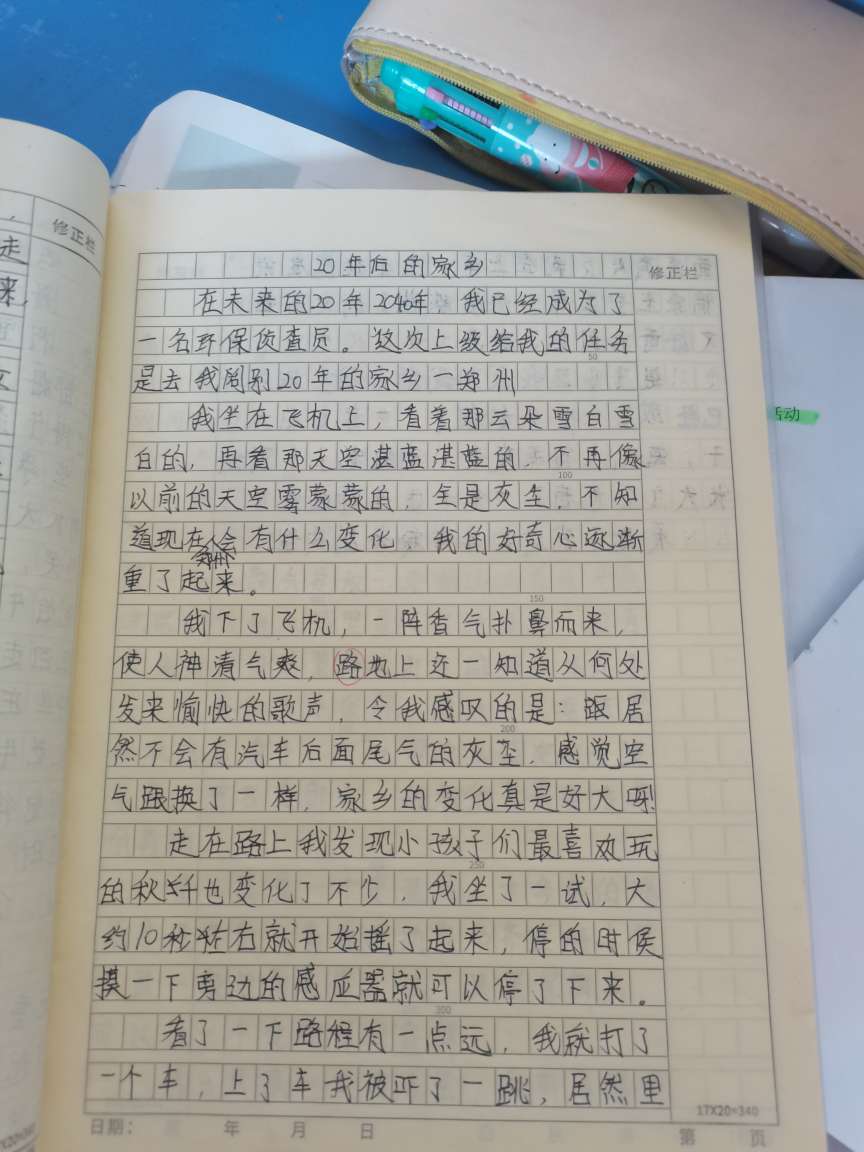 走
来,
修正栏
20年后的家乡
修正栏
在未来的20年2040年,我已经成为了
一名环保侦查员。这次上级给我的任务
50
是去我阔别20年的家乡一郑州
我坐在飞机上,看着那云朵雪白雪
活动
白的,再看那天空湛蓝湛蓝的,不再像
100
以前的天空雾蒙蒙的,全是灰尘,不知
道现在会有什么变化,我的好奇心逐渐
郑州
重了起来。
150
我下了飞机,一阵香气扑鼻而来,
使人神清气爽,路地上还一知道从何处
发来愉快的歌声,令我感叹的是:居
200
然不会有汽车后面尾气的灰尘,感觉空
气跟换了一样,家乡的变化真是好大呀!
走在路上我发现小孩子们最喜欢玩
250
的秋千也变化了不少,我坐了一试,大
约10秒左右就开始摇了起来,停的时候
摸一下旁边的感应器就可以停了下来。
300
看了一下路程有一点远,我就打了
一个车,上了车我被吓了一跳,居然里
17X20=340
日期: 年 月 日
第 页
X20=340